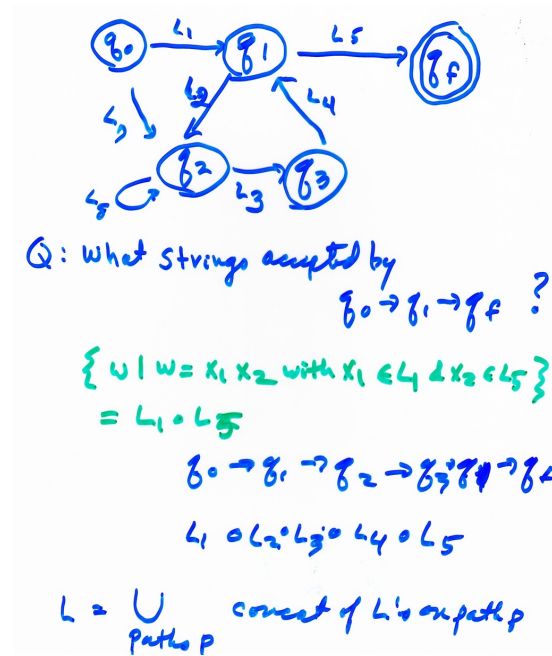 q₀ L₁ q₁ L₅ q_f
L₂ L₄
q₂ L₃ q₃
L₈
Q: What strings accepted by
q₀ → q₁ → q_f ?
{ w | w = x₁ x₂ with x₁ ∈ L₁ & x₂ ∈ L₅ }
= L₁ ∘ L₅
q₀ → q₁ → q₂ → q₃ → q₁ → q_f
L₁ ∘ L₂ ∘ L₃ ∘ L₄ ∘ L₅
L = ∪ concat of L's on path p
paths p